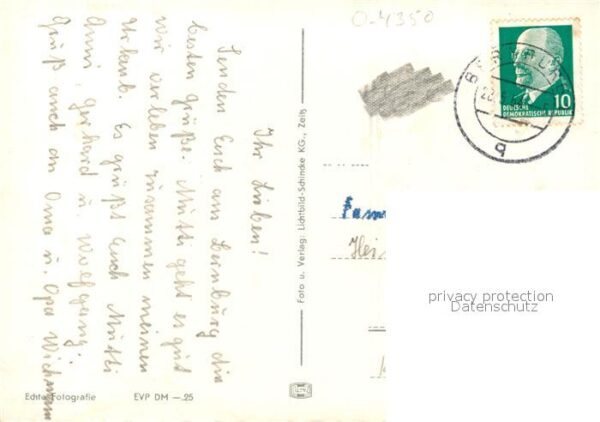 O-4350
BERNBURG
22.
q
10
DEUTSCHE
DEMOKRATISCHE REPUBLIK
Ihr Lieben!
Senden Euch aus Bernburg die
besten Grüße. Mutti geht es gut
wir verleben zusammen meinen
Urlaub. Es grüßt Euch Mutti
Anni, Gerhard u. Wolfgang.
Gruß auch an Oma u. Opa
Foto u. Verlag: Lichtbild-Schincke KG., Zeitz
Fam
Hei
privacy protection
Datenschutz
Echte Fotografie EVP DM —.25